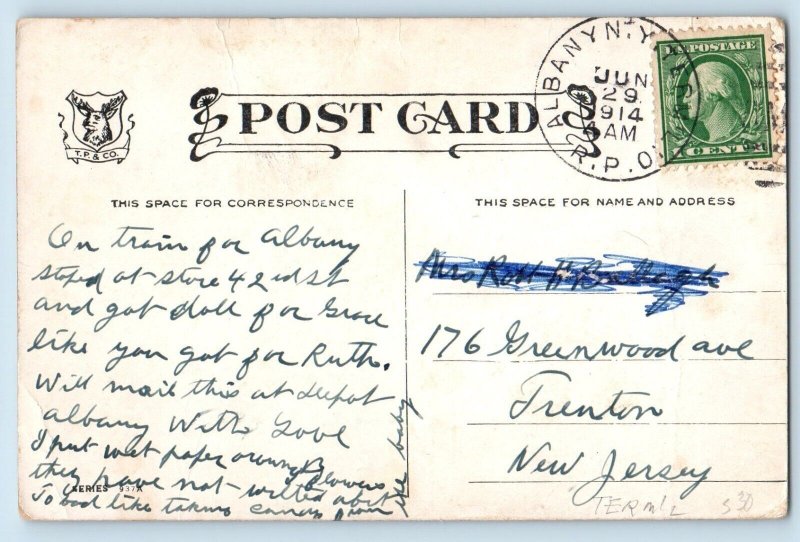 POST CARD
T. P. & CO.
ALBANY N.Y.
JUN
29
1914
AM
R.P.O.
U.S. POSTAGE
THIS SPACE FOR CORRESPONDENCE
On train for Albany
stoped at store 42nd St
and got doll for Grace
like you got for Ruth.
Will mail this at depot
albany With Love
I put wet paper around flowers
they have not wilted a bit
To bad like taking candy from the baby
SERIES 937A
THIS SPACE FOR NAME AND ADDRESS
Mrs Robt H
176 Greenwood ave
Trenton
New Jersey
TERM'L